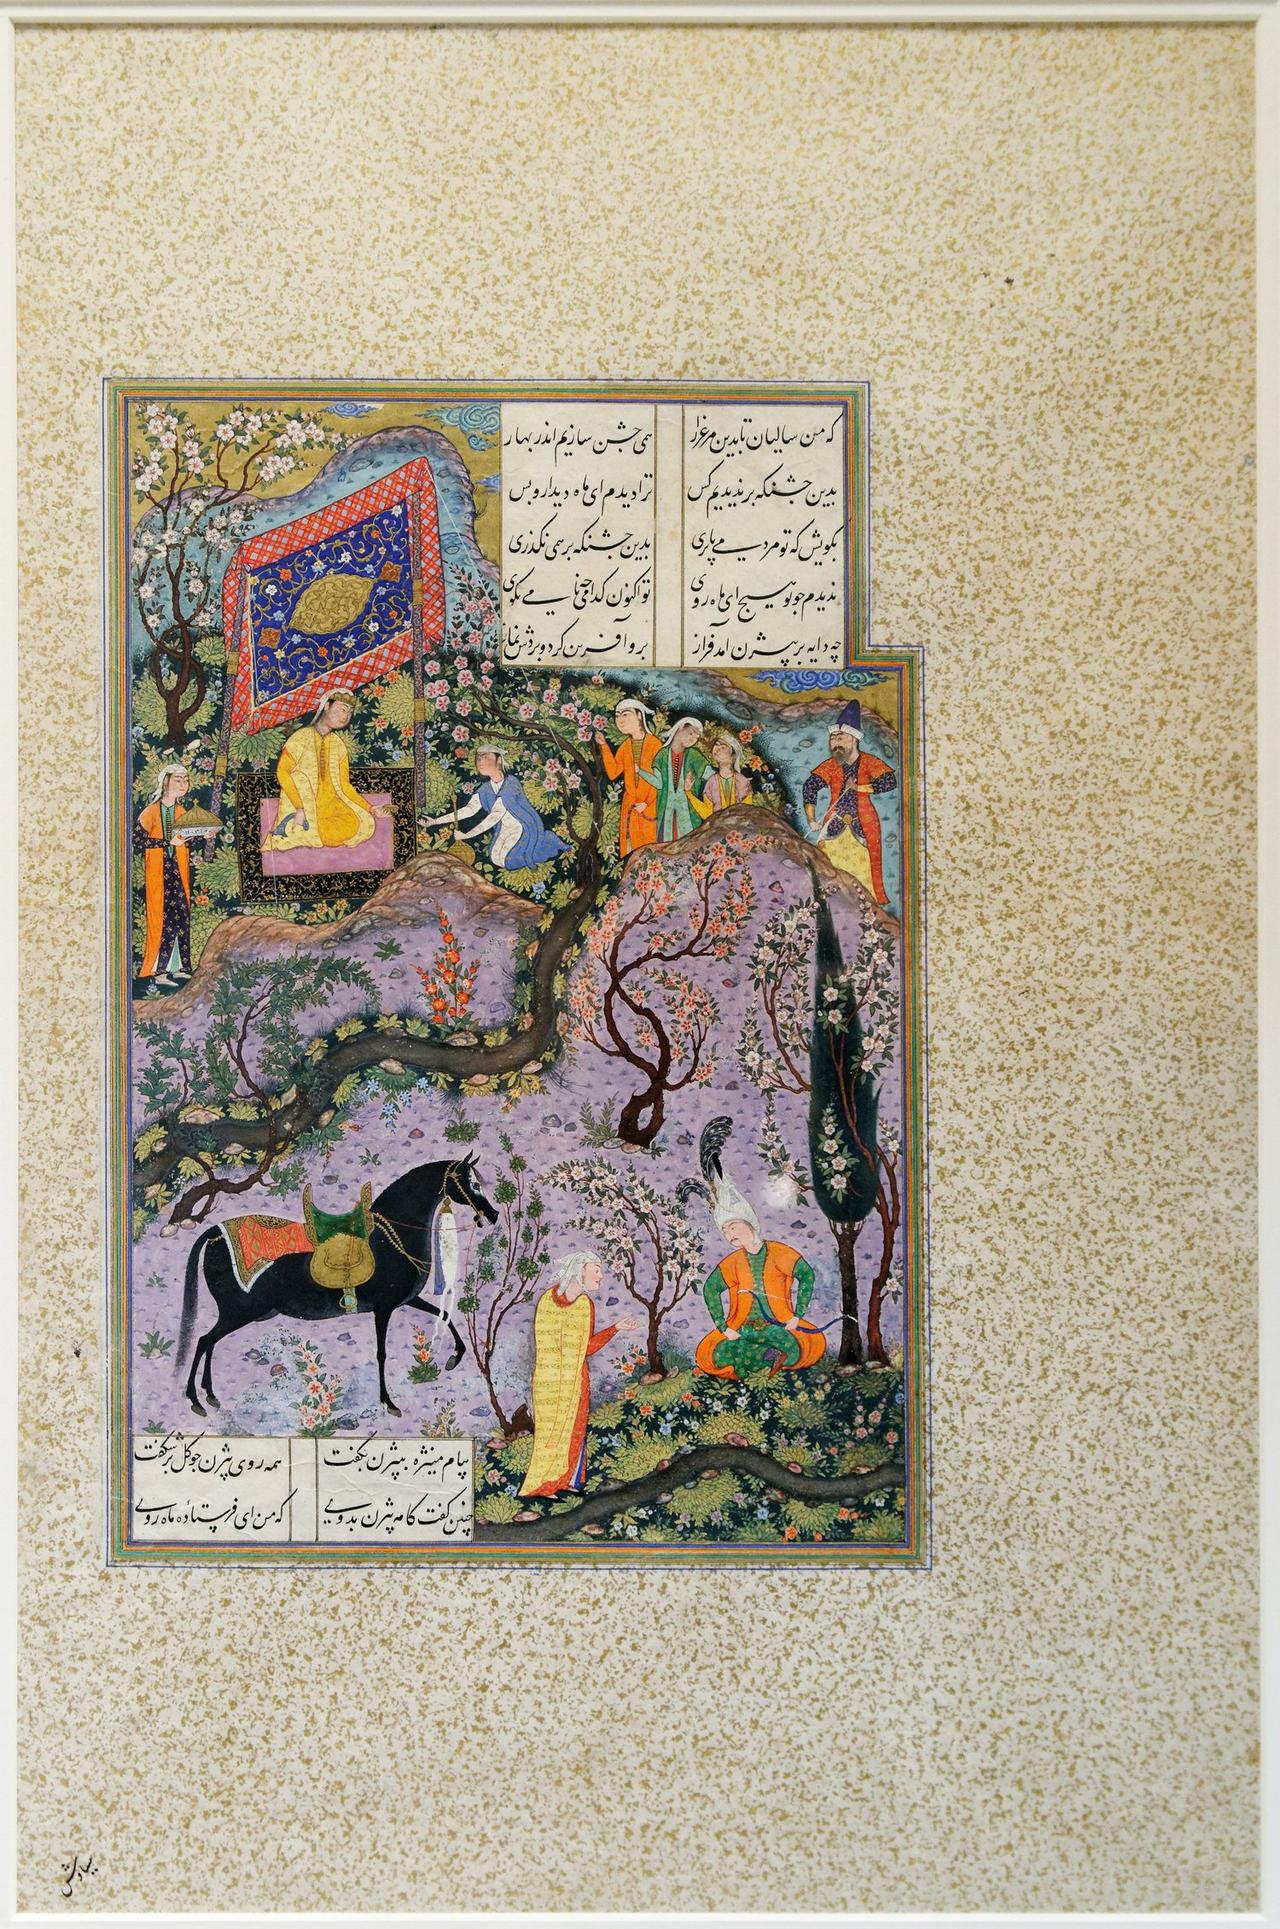 که من سالیان تا بدین مرغزار همی جشن سازیم اندر بهار
بدین جشنگه بر ندیدیم کس ترا دیدم ای ماه دیدار و بس
بگویش که تو مردمی یا پری بدین جشنگه بر همی بگذری
ندیدم چو تو هیچ ای ماه روی تو اکنون کدامی چه نامی بگوی
چه دایه بر بیژن آمد فراز برو آفرین کرد و بردش نماز
پیام منیژه ببیژن بگفت همه روی بیژن چو گل بر شکفت
چنین گفت کامه بیژن بدوی که من ای فرستاده ماه روی
سیاوش